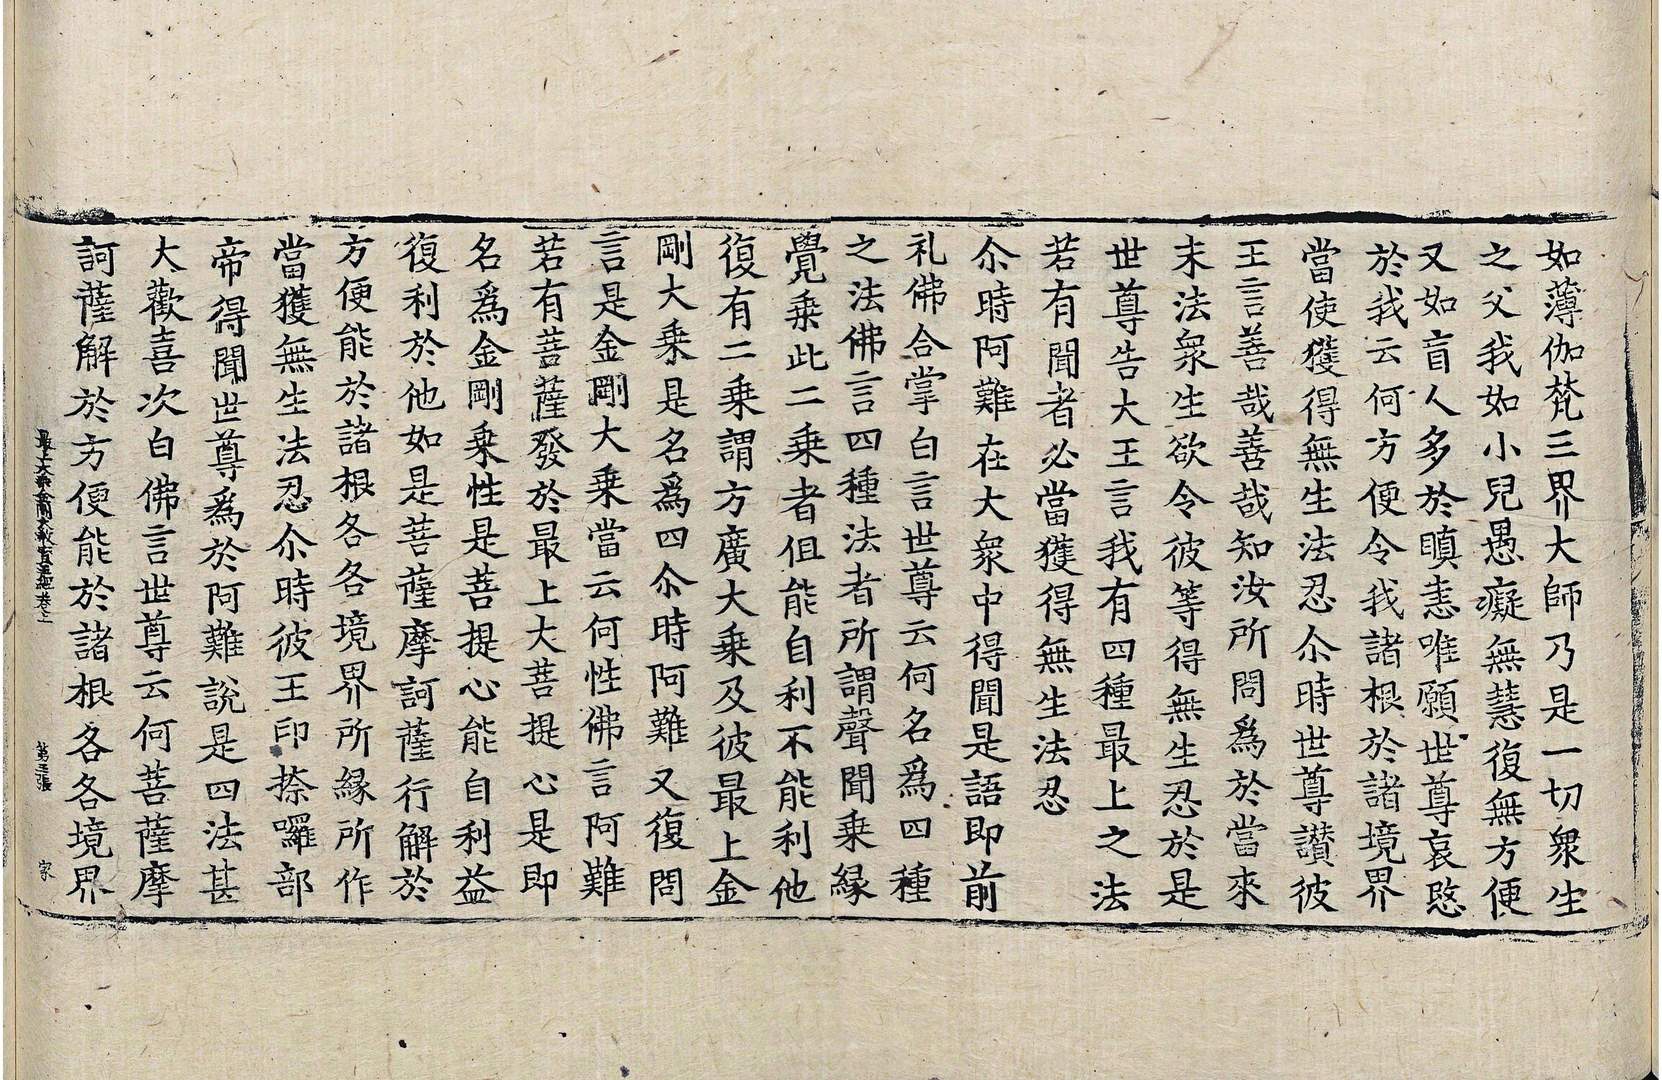 如薄伽梵三界大師乃是一切衆生
之父我如小兒愚癡無慧復無方便
又如盲人多於瞋恚唯願世尊哀愍
於我云何方便令我諸根於諸境界
當使獲得無生法忍尒時世尊讃彼
王言善哉善哉知汝所問爲於當來
末法衆生欲令彼等得無生忍於是
世尊告大王言我有四種最上之法
若有聞者必當獲得無生法忍
尒時阿難在大衆中得聞是語即前
礼佛合掌白言世尊云何名爲四種
之法佛言四種法者所謂聲聞乗緣
覺乗此二乗者伹能自利不能利他
復有二乗謂方廣大乗及彼最上金
剛大乗是名爲四尒時阿難又復問
言是金剛大乗當云何性佛言阿難
若有菩薩發於最上大菩提心是即
名爲金剛乗性是菩提心能自利益
復利於他如是菩薩摩訶薩行解於
方便能於諸根各各境界所緣所作
當獲無生法忍尒時彼王印捺囉部
帝得聞世尊爲於阿難說是四法甚
大歡喜次白佛言世尊云何菩薩摩
訶薩解於方便能於諸根各各境界
最上大乗金剛大教寳王經卷上 第三張 家